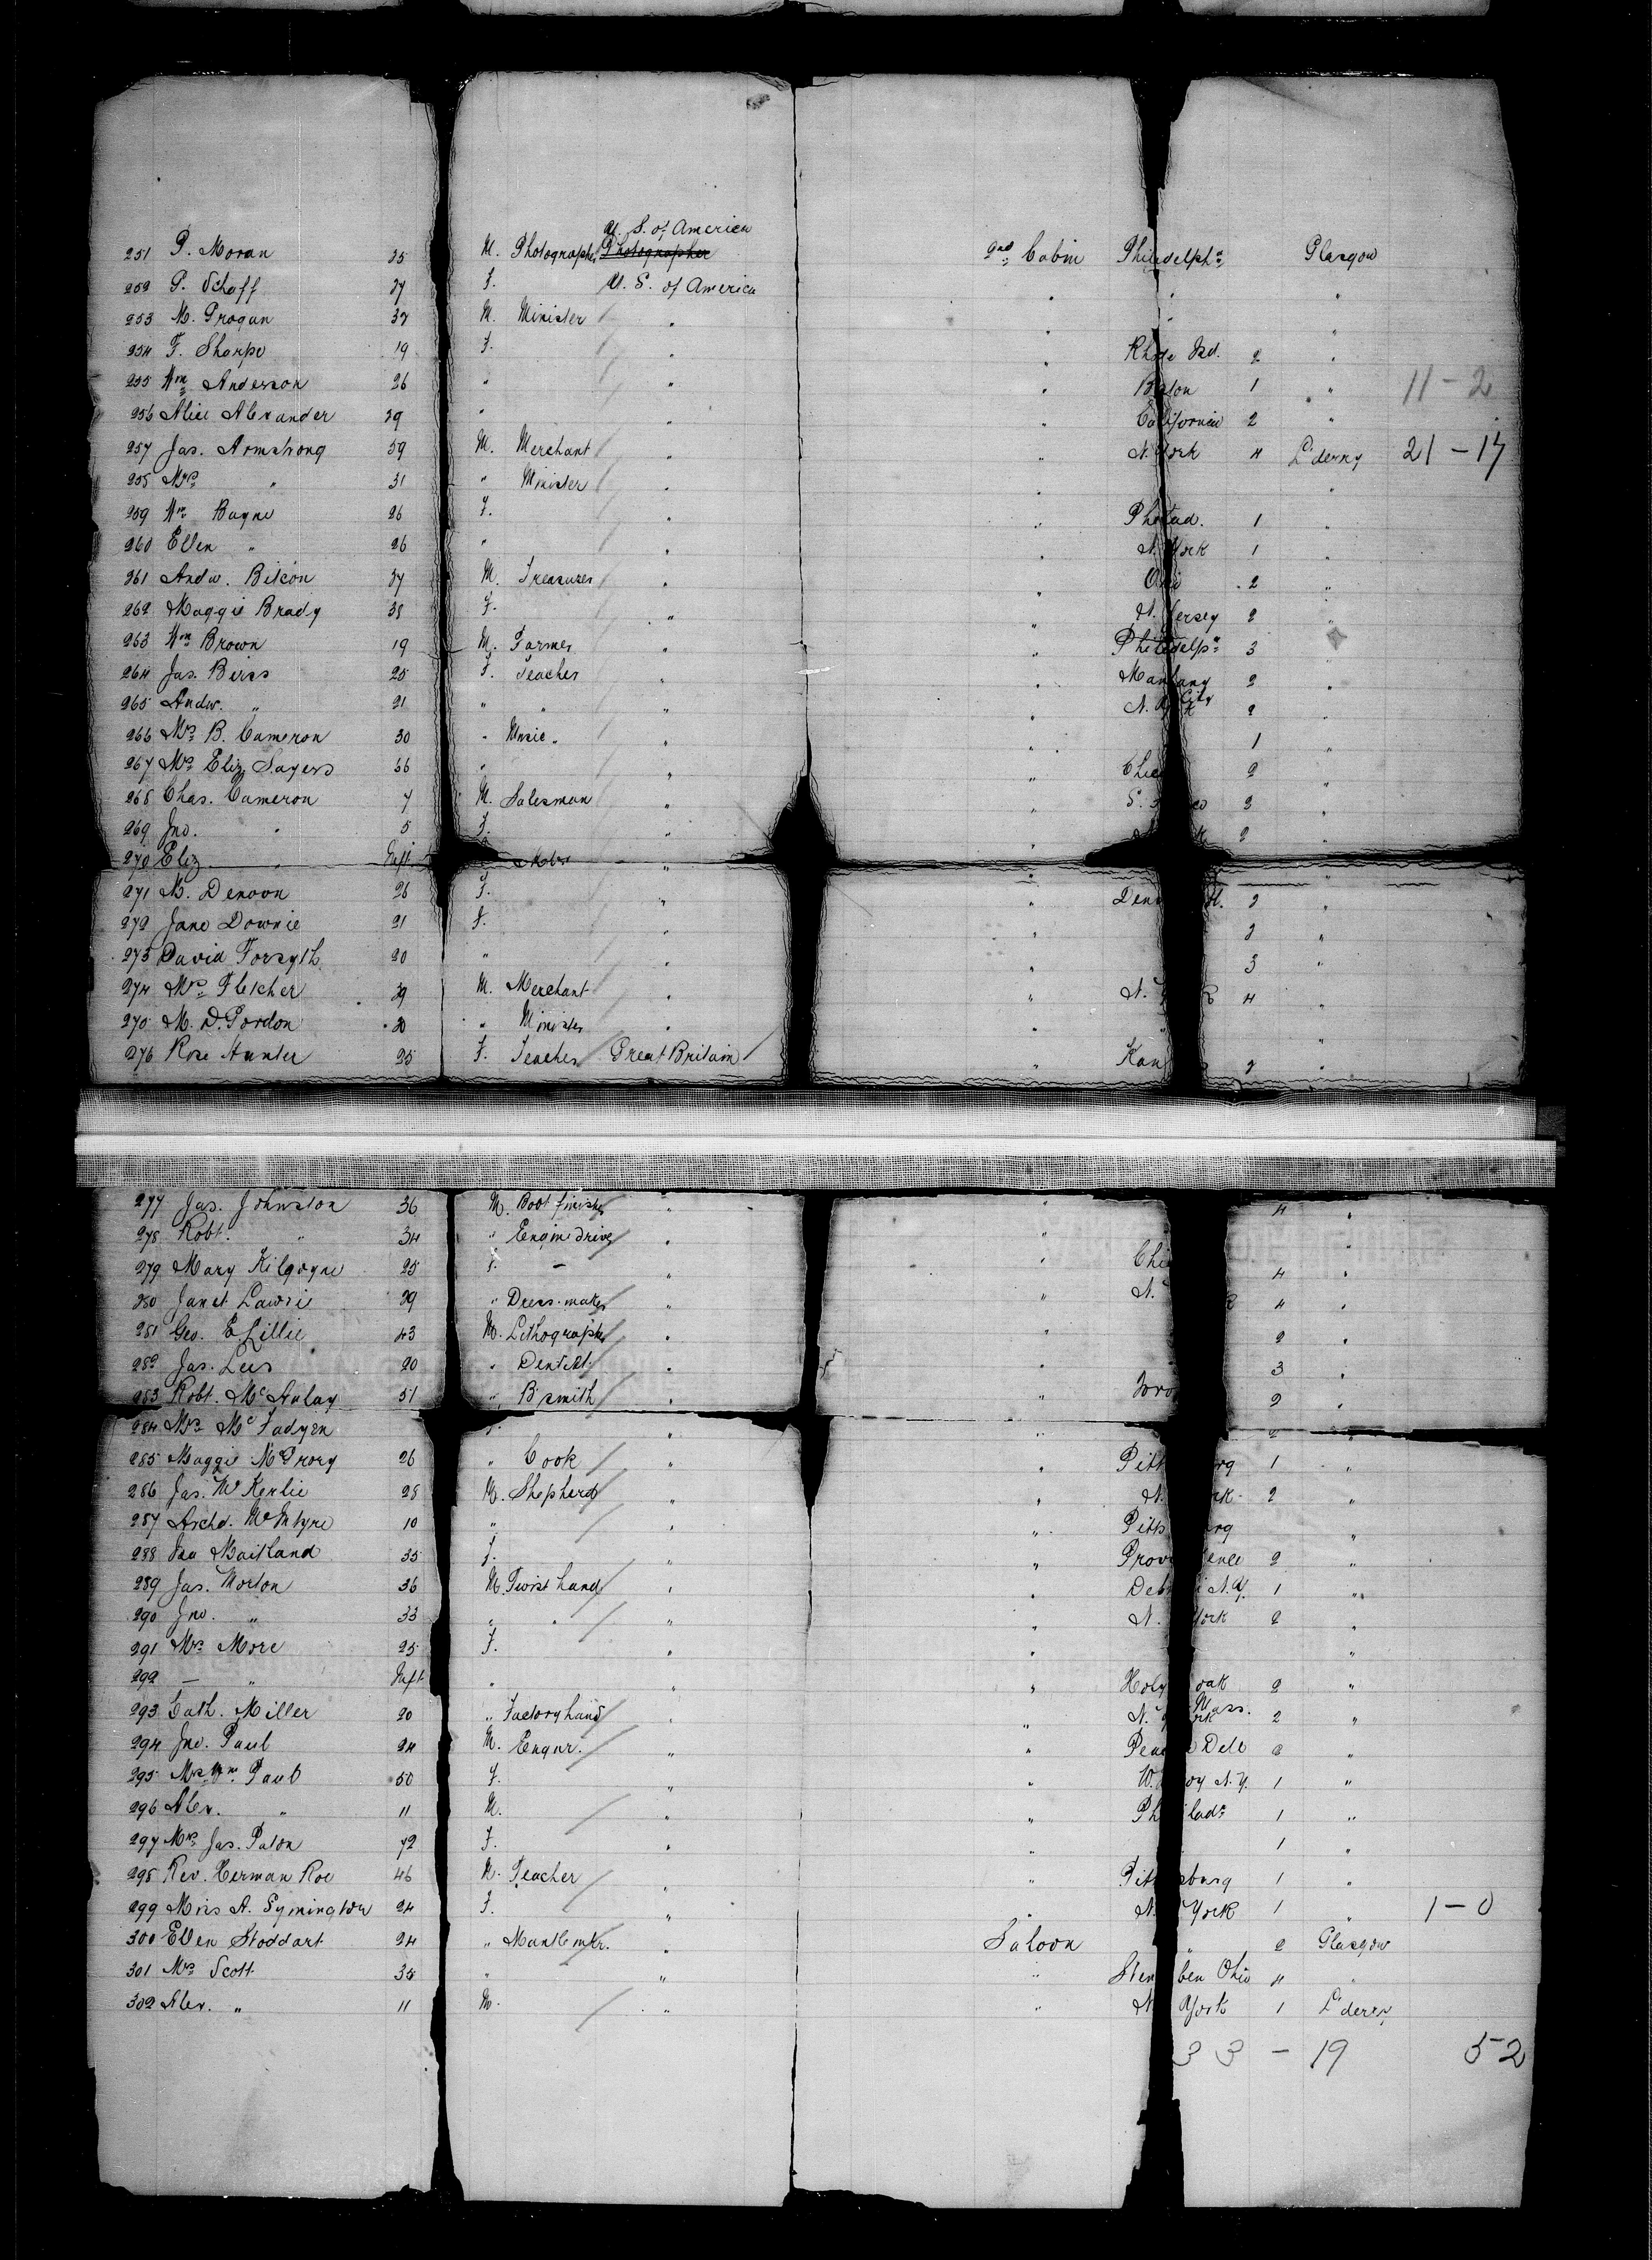 U. S. of America
251 P. Moran 35 M. Photographer Photographer 2nd Cabin Philadelpha Glasgow
252 P. Schoff 27 F. U. S. of America " " "
253 M. Grogan 32 M. Minister " " " "
254 F. Sharpe 19 F. " " Rhode Isd. 2 "
255 Wm Anderson 26 " " " Boston 1 " 11-2
256 Alice Alexander 29 " " " California 2 "
257 Jas. Armstrong 59 M. Merchant " " N. York 4 L'derry 21-17
258 Mrs " 31 " Minister " " "
259 Wm Bayne 26 F. " " Philad. 1 "
260 Ellen " 26 " " " N. York 1 "
261 Andw. Bilcon 37 M. Treasurer " " Ohio 2 "
262 Maggie Brady 38 F. " " N. Jersey 2 "
263 Wm Brown 19 M. Farmer " " Philadelpa 3 "
264 Jas. Birss 25 F. Teacher " " 2 "
265 Andw. " 21 " " " " N. York City 2 "
266 Mrs B. Cameron 30 " Music " " " 1 "
267 Mrs Eliz. Sayers 56 " " " Chic 2 "
268 Chas. Cameron 7 M. Salesman " " S. co 2 "
269 Jno. " 5 F. " " 2 "
270 Eliz " Inft. " "
271 M. Denoon 26 F. " " Den 2 "
272 Jane Downie 21 F. " " 2 "
273 David Forsyth 20 " " " 3 "
274 Mrs Fletcher 39 M. Merchant " " N. 4 "
275 M. D. Gordon 30 " Minister " " " "
276 Rose Hunter 25 F. Teacher Great Britain " Kan 2 "
277 Jas. Johnston 36 M. Boot finisher " " 4 "
278 Robt. " 34 " Engine driver " " "
279 Mary Kilgoyne 25 F. - " " Chi 4 "
280 Janet Lawrie 29 " Dress maker " " N. 4 "
281 Geo. E. Lillie 43 M. Lithographer " " 2 "
282 Jas. Lees 20 " Dentist " " 3 "
283 Robt. McAulay 51 " B'smith " " 2 "
284 Mrs McFadyen F. " " 2 "
285 Maggie McGrory 26 " Cook " " Pitt rg 1 "
286 Jas. McKerlie 28 M. Shepherd " " N. rk 2 "
287 Archd. McIntyre 10 " " " Pitts rg "
288 Isa Maitland 35 F. " " Provi ence 2 "
289 Jas. Morton 36 M. Twist hand " " N.Y. 1 "
290 Jno. " 33 " " " " N. York 2 "
291 Mrs More 25 F. " " "
292 - " Inft " " " Holy oak Mass. 2 "
293 Cath. Miller 20 " Factory hand " " N. York 2 "
294 Jno. Paul 24 M. Engnr. " " Peace Dell 3 "
295 Mrs Wm Paul 50 F. " " W. Troy N.Y. 1 "
296 Alex. " 11 M. " " Philada 1 "
297 Mrs Jas. Paton 72 F. " " 1 "
298 Rev. Herman Roe 46 M. Teacher " " Pittsburg 1 "
299 Miss A. Symington 24 F. " " N. York 1 " 1-0
300 Ellen Stoddart 24 " Mantle mkr. " Saloon " 2 Glasgow
301 Mrs Scott 35 " " " Steu ben Ohio 4 "
302 Alex. " 11 M. " " N. York 1 L'derry
33 - 19 52